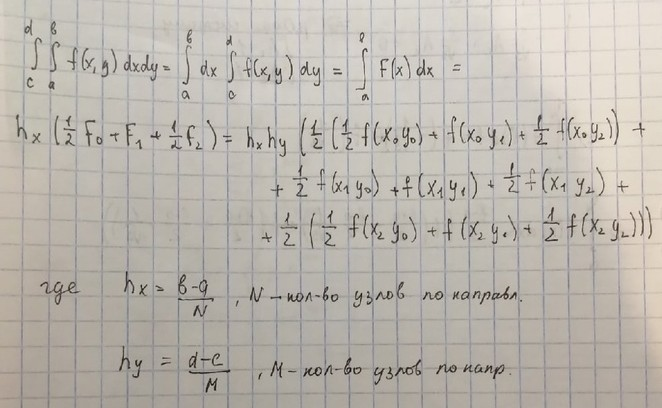 ∫_c^d ∫_a^в f(x,y) dxdy = ∫_a^в dx ∫_c^d f(x,y) dy = ∫_a^в F(x) dx =
h_x (1/2 F_0 + F_1 + 1/2 f_2) = h_x h_y (1/2 (1/2 f(x_0 y_0) + f(x_0 y_1) + 1/2 f(x_0 y_2)) +
+ 1/2 f(x_1 y_0) + f(x_1 y_1) + 1/2 f(x_1 y_2) +
+ 1/2 (1/2 f(x_2 y_0) + f(x_2 y_1) + 1/2 f(x_2 y_2)))
где h_x = (в-a)/N , N - кол-во узлов по направл.
h_y = (d-c)/M , M - кол-во узлов по напр.